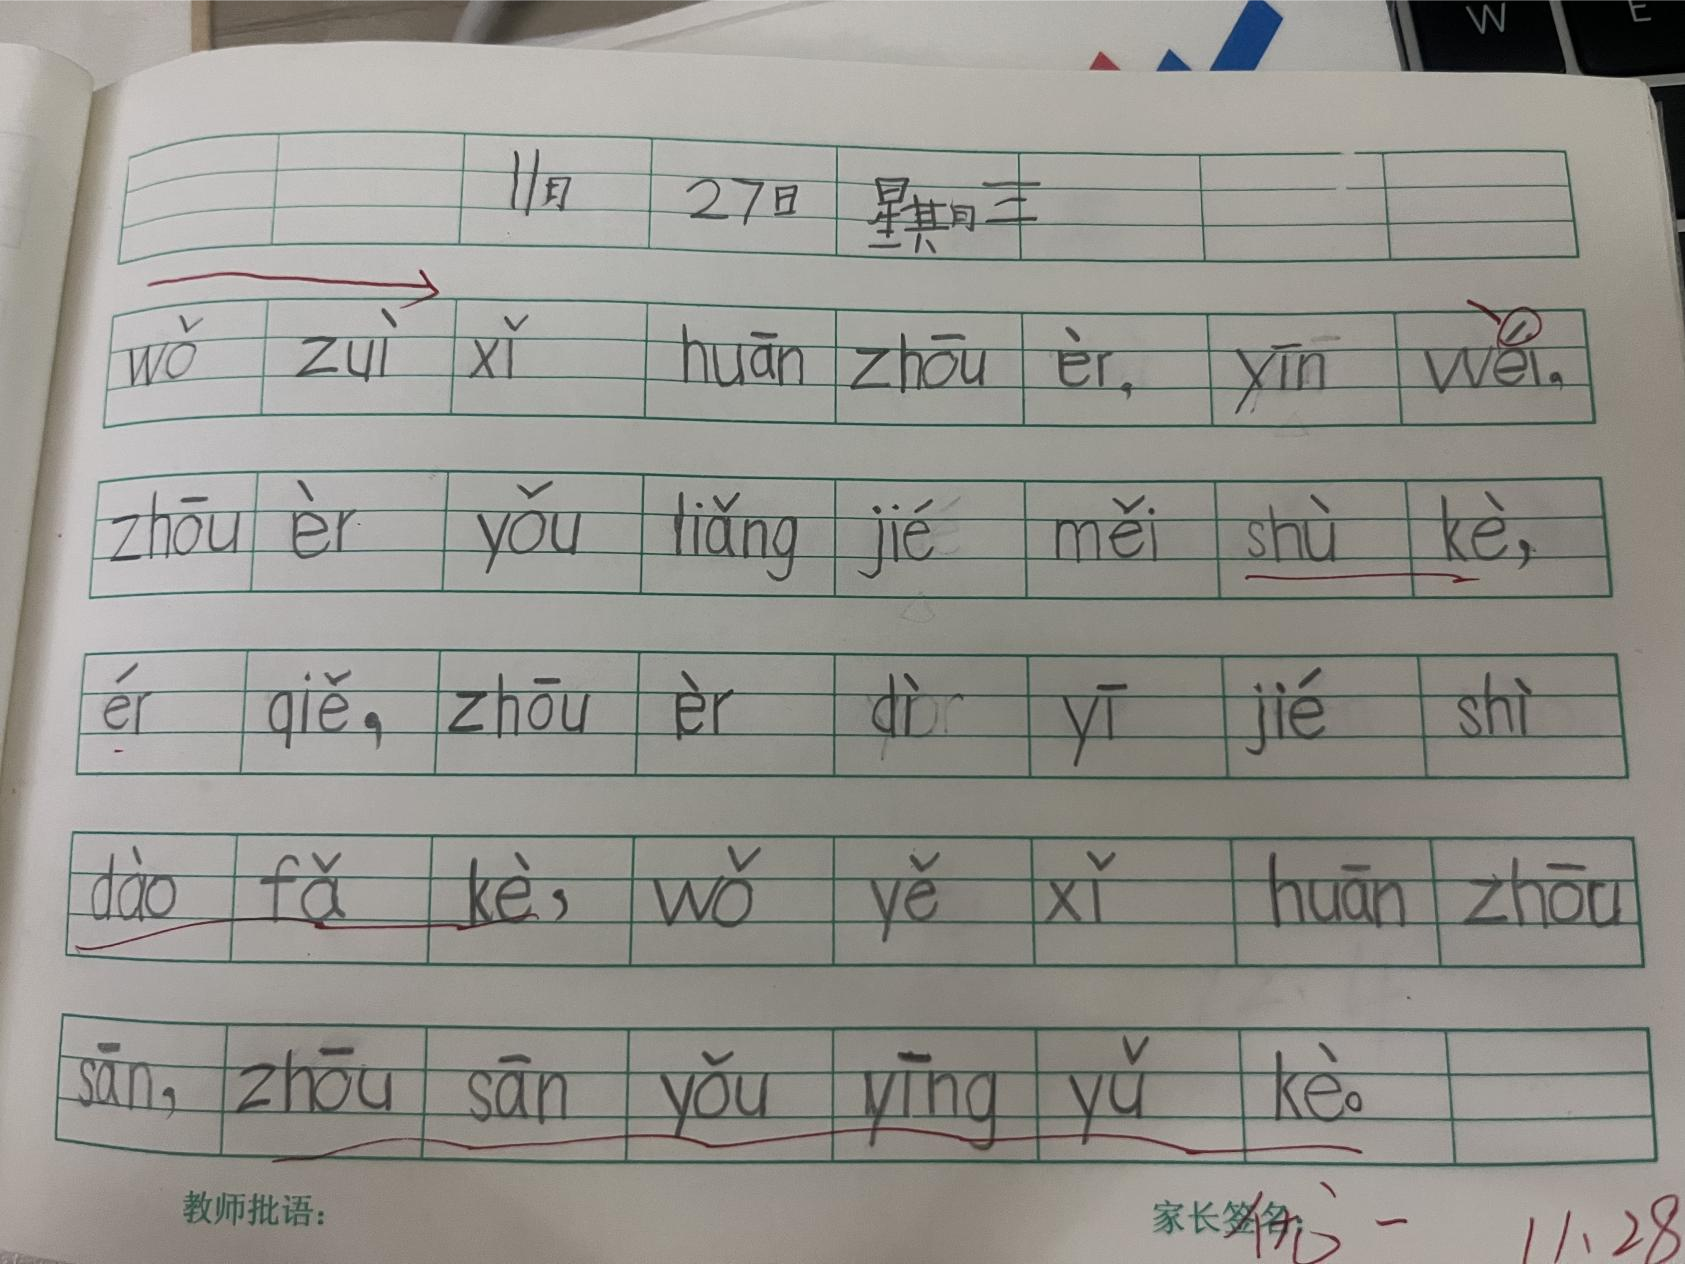 W E
11月 27日 星期三
wǒ zuì xǐ huān zhōu èr, yīn wéi,
zhōu èr yǒu liǎng jié měi shù kè,
ér qiě, zhōu èr dì yī jié shì
dào fǎ kè, wǒ yě xǐ huān zhōu
sān, zhōu sān yǒu yīng yǔ kè。
教师批语: 家长签名:
11.28